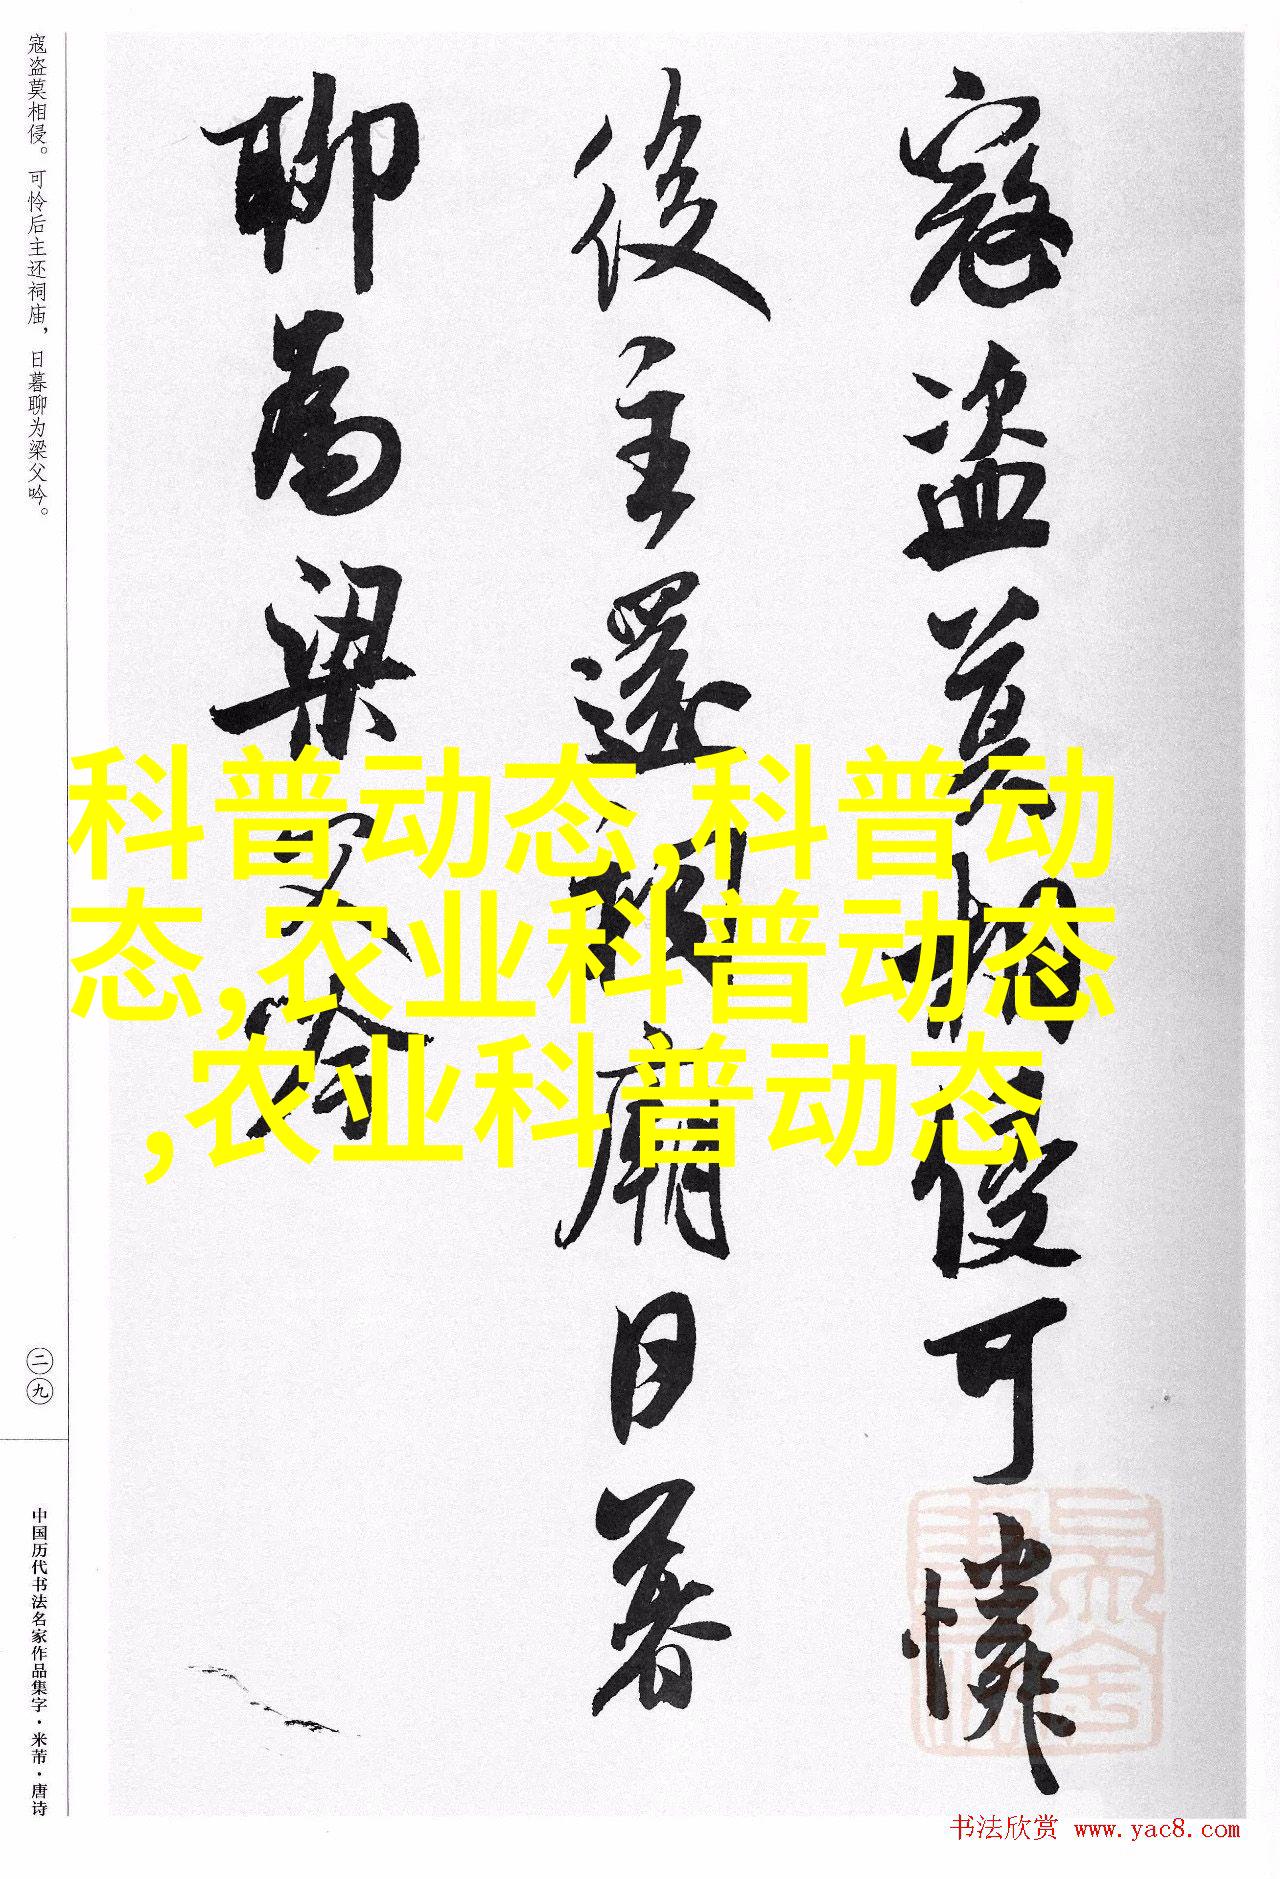 寇盗莫相侵可憐
後主還祠廟日暮
聊為梁父吟
寇盗莫相侵。可怜后主还祠庙，日暮聊为梁父吟。
二九
中国历代书法名家作品集字·米芾·唐诗
科普动态,科普动
态,农业科普动态
,农业科普动态
书法欣赏 www.yac8.com